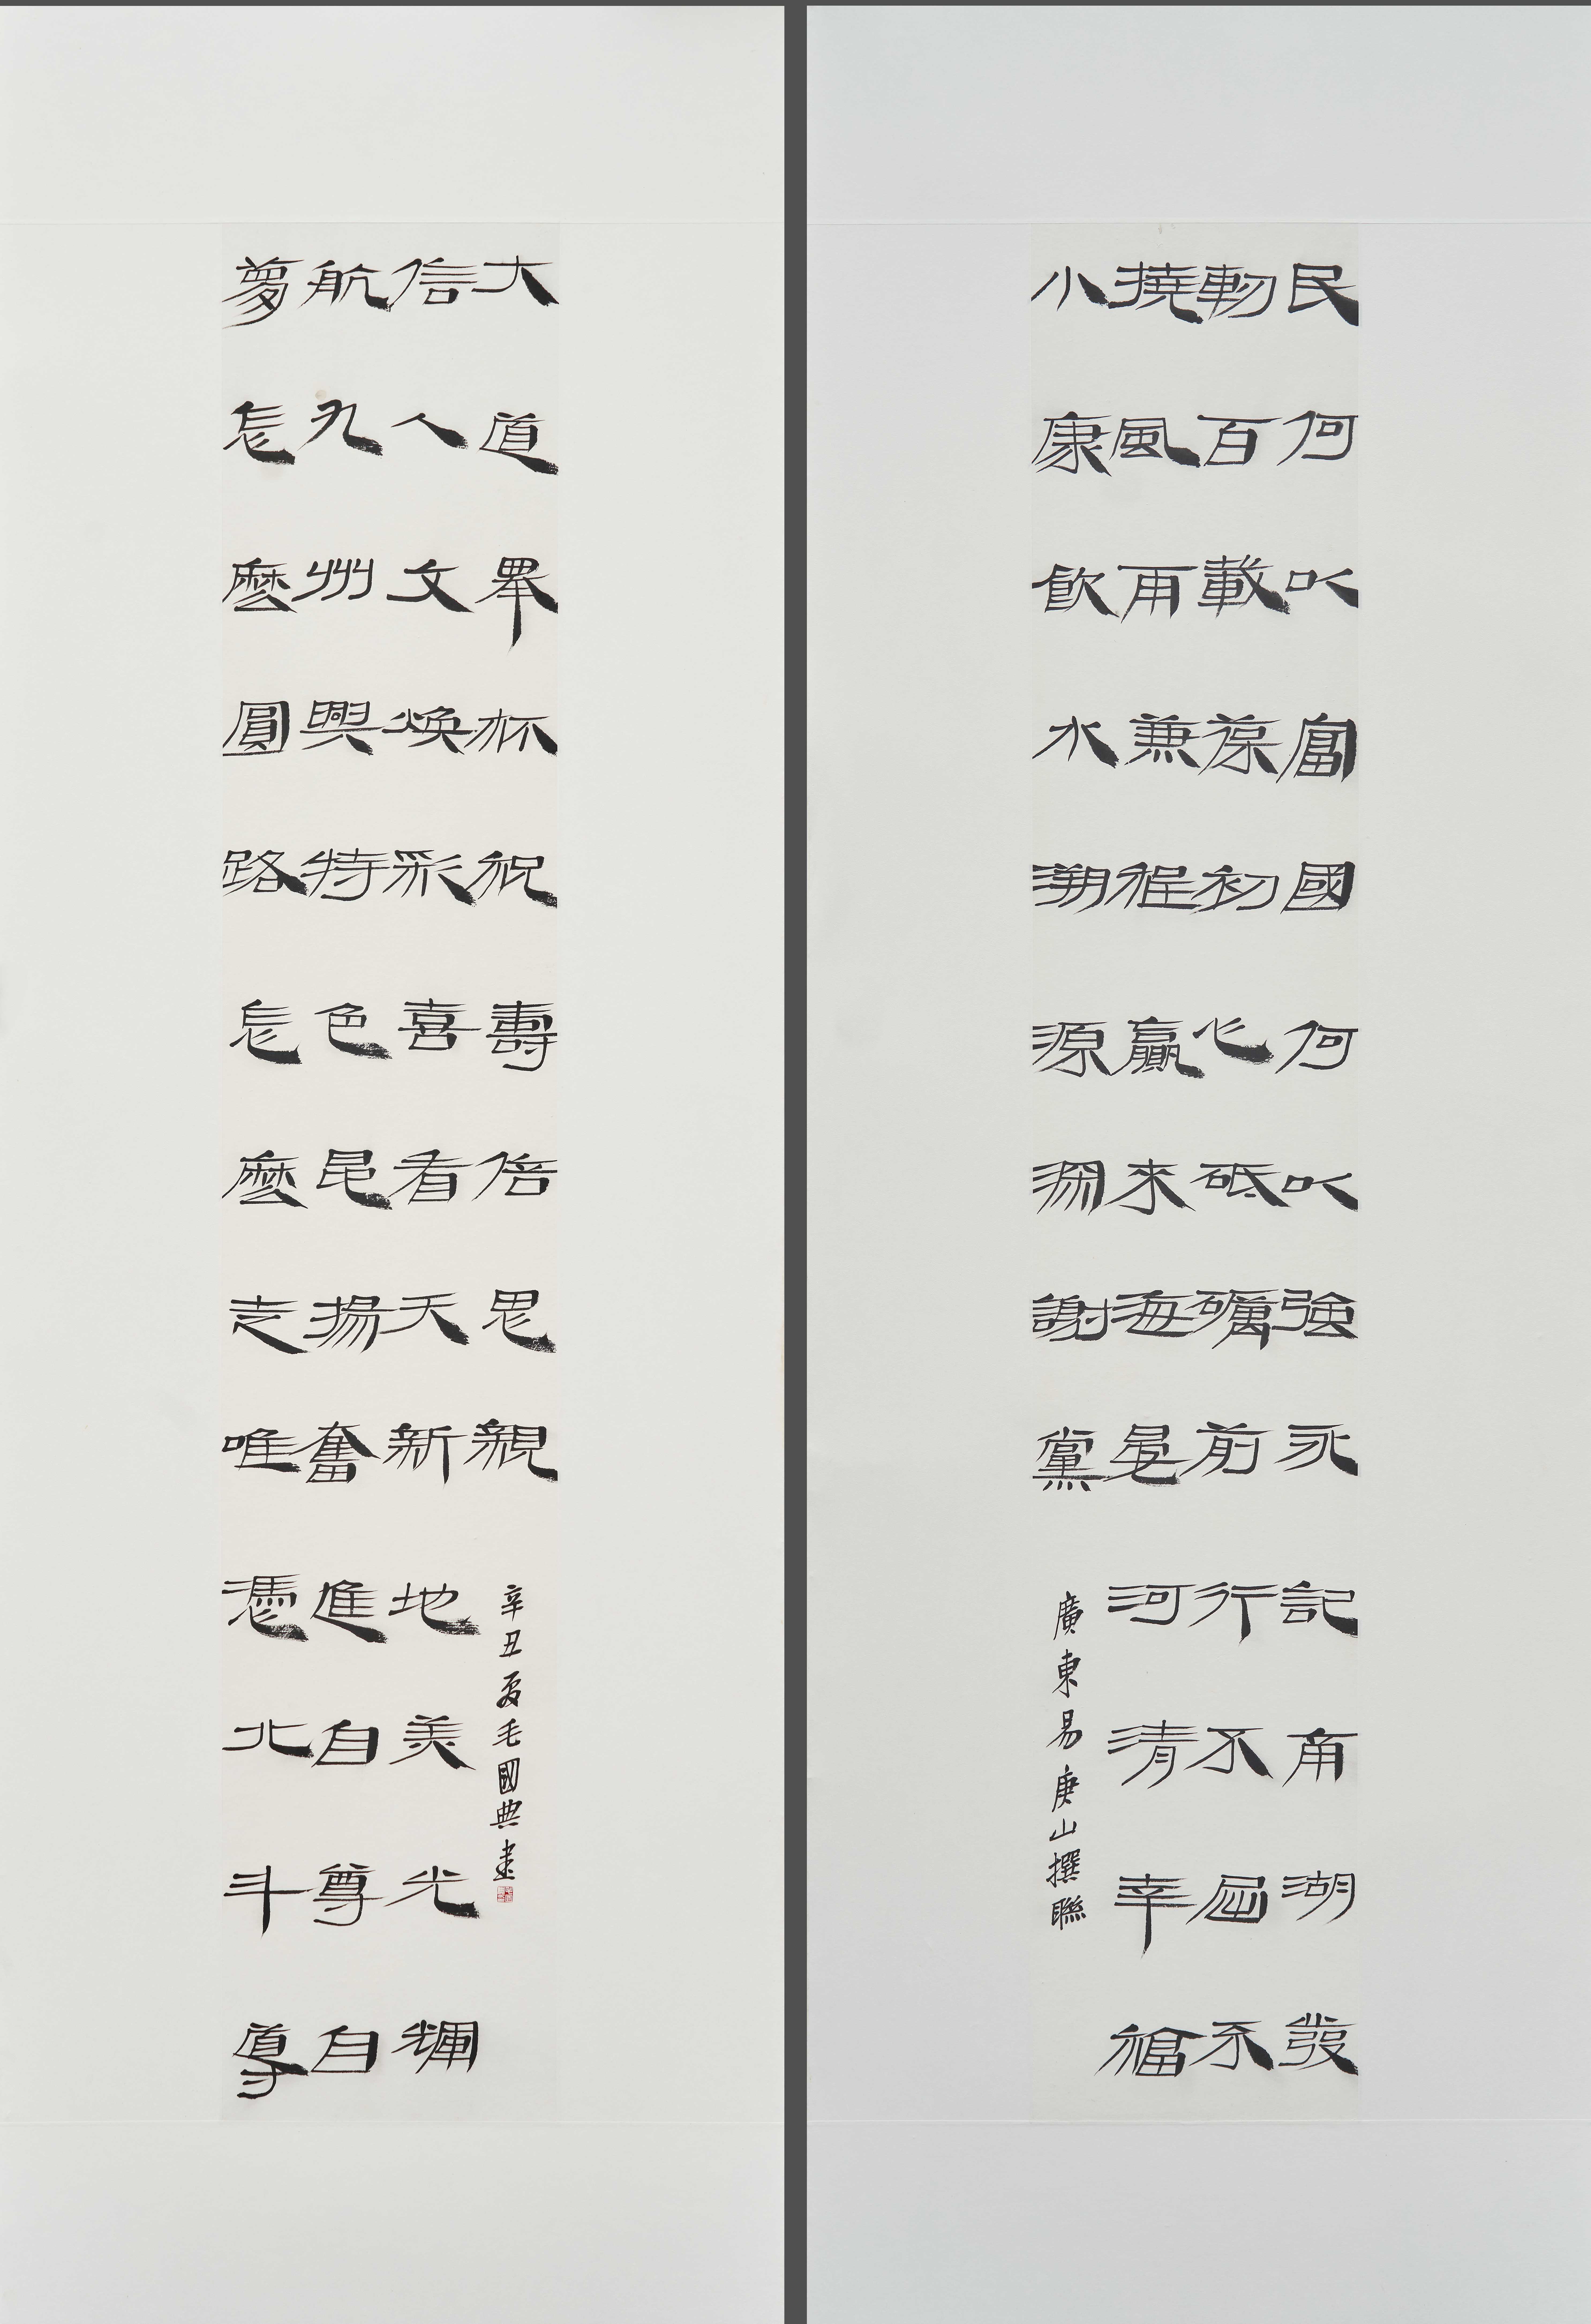 民何以富國何以強永記南湖發
軔百載葆初心砥礪前行不屈不
撓風雨兼程贏來海晏河清幸福
小康飲水溯源深謝黨
廣東易庚山撰聯
夢怎麼圓路怎麼走唯憑北斗導
航九州興特色昂揚奮進自尊自
信人文煥彩喜看天新地美光輝
大道舉杯祝壽倍思親
辛丑夏毛國典書